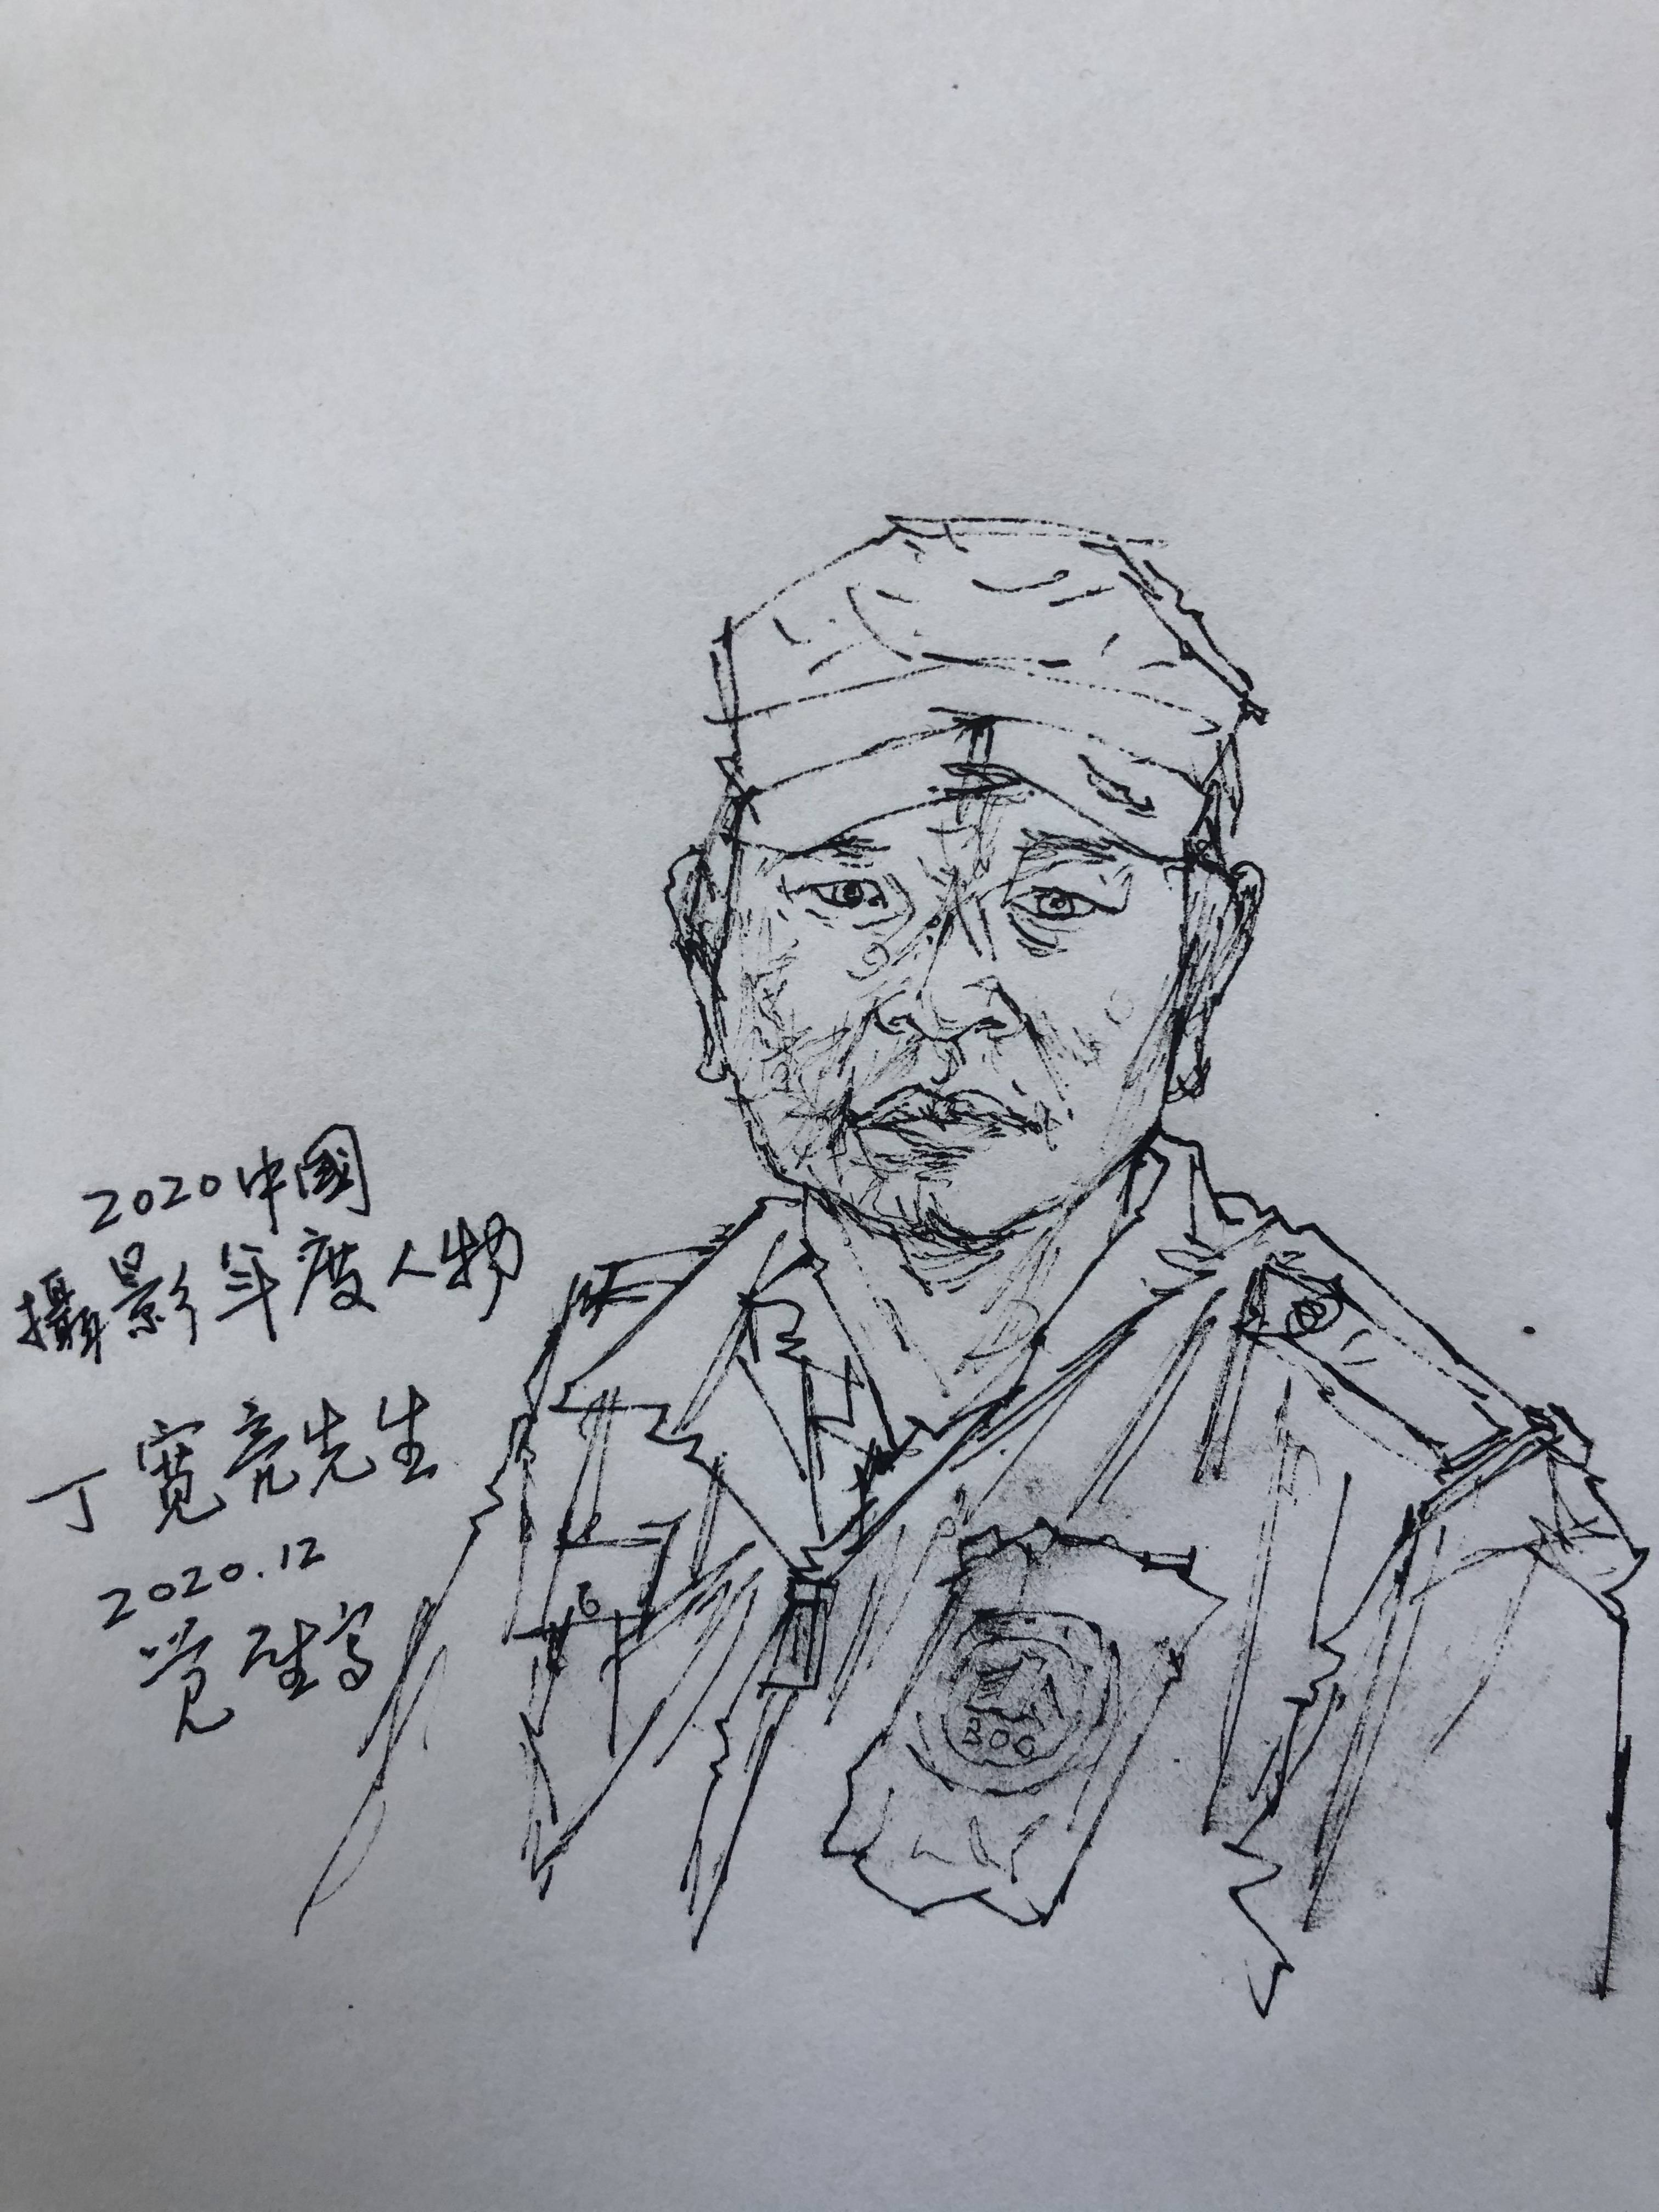 2020中國
攝影年度人物
丁寬亮先生
2020.12
觉硅写
BOG